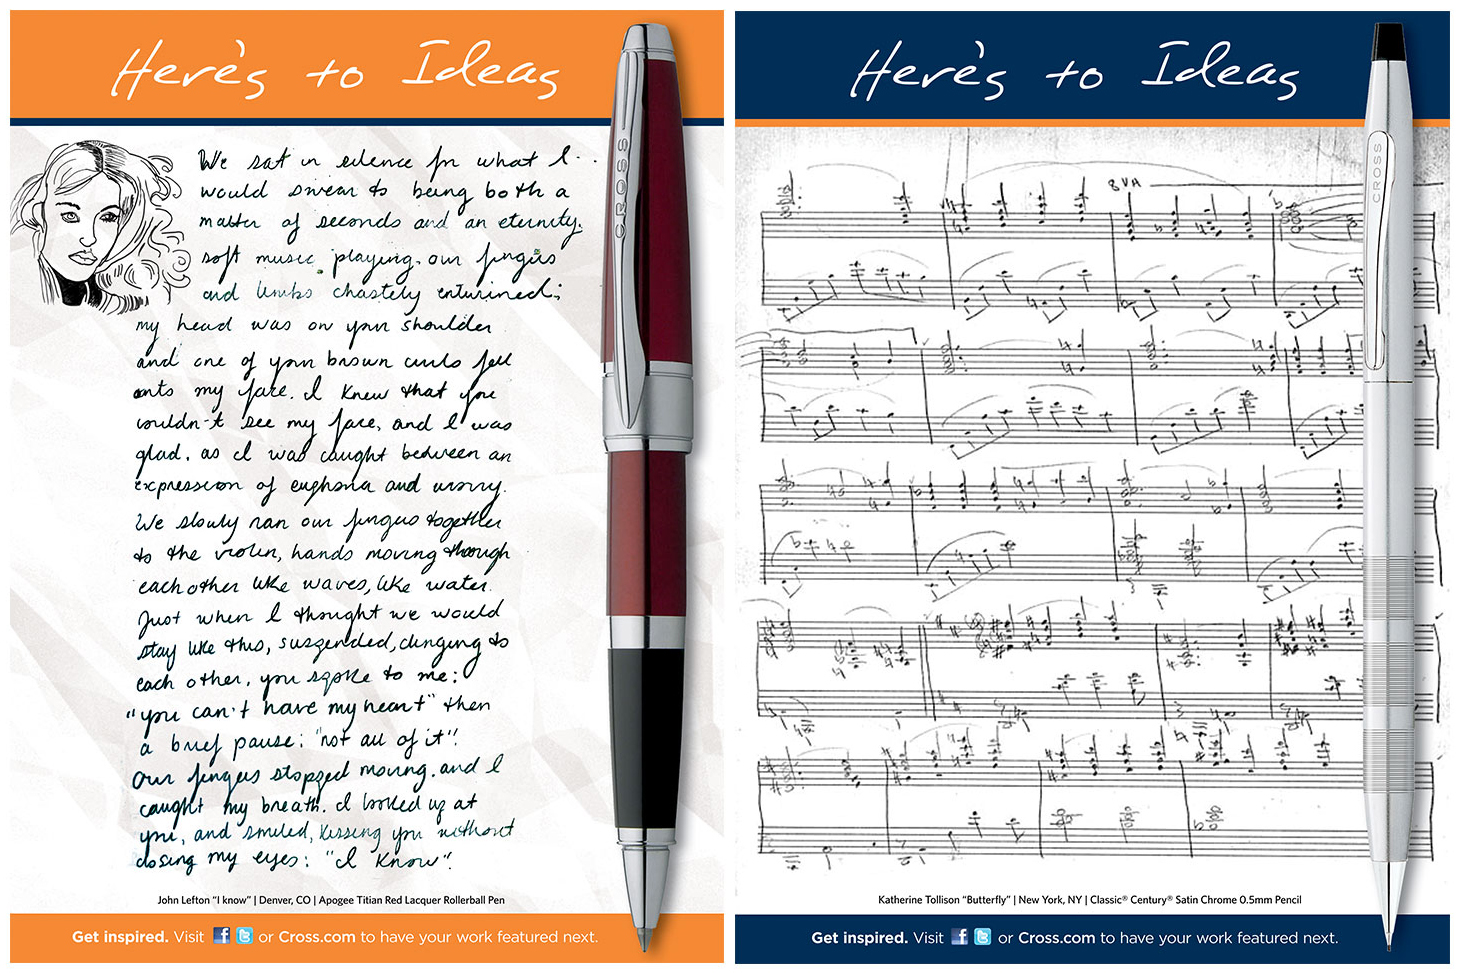 Here's to Ideas
We sat in silence for what I...
would swear to being both a
matter of seconds and an eternity.
soft music playing, our fingers
and limbs chastely entwined;
my head was on your shoulder
and one of your brown curls fell
onto my face. I knew that you
couldn't see my face, and I was
glad, as I was caught between an
expression of euphoria and worry.
We slowly ran our fingers together
to the violin, hands moving through
each other like waves, like water.
Just when I thought we would
stay like this, suspended, clinging to
each other, you spoke to me:
"you can't have my heart" then
a brief pause: "not all of it".
Our fingers stopped moving, and I
caught my breath. I looked up at
you, and smiled, kissing you without
closing my eyes: "I know".
CROSS
John Lefton “I know” | Denver, CO | Apogee Titian Red Lacquer Rollerball Pen
Get inspired. Visit f t or Cross.com to have your work featured next.
Here's to Ideas
8VA
CROSS
Katherine Tollison “Butterfly” | New York, NY | Classic® Century® Satin Chrome 0.5mm Pencil
Get inspired. Visit f t or Cross.com to have your work featured next.